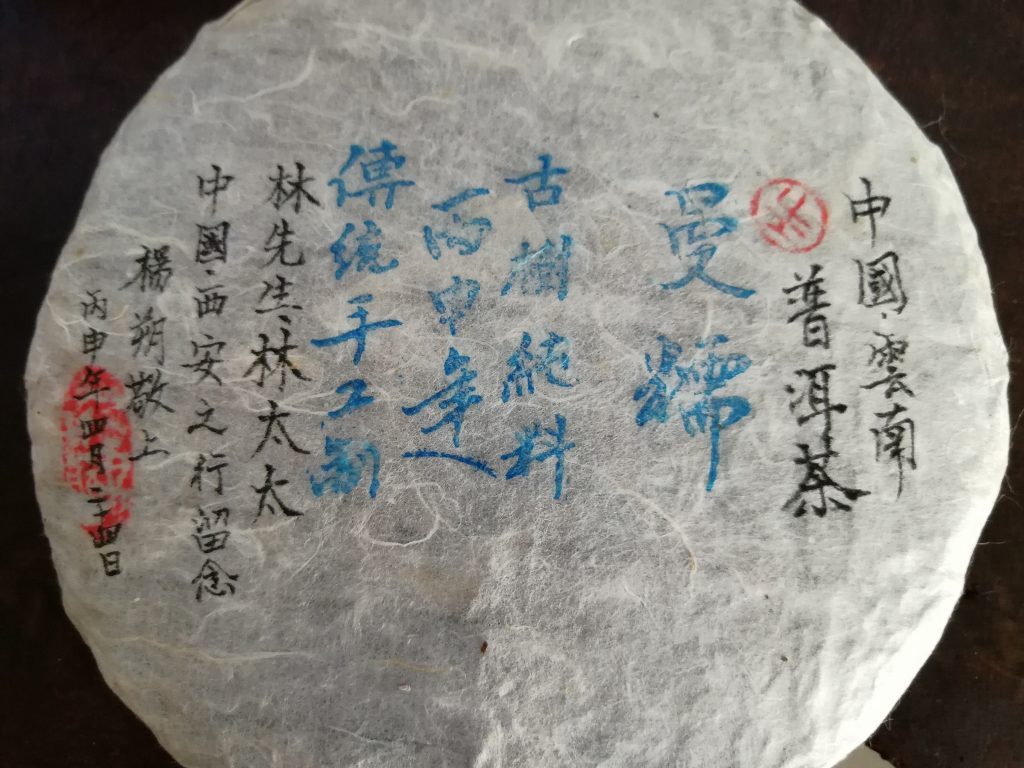 中國·雲南
普洱茶
曼糯
古樹純料
丙申年
傳統手工制
林先生、林太太
中國·西安之行留念
楊朔敬上
丙申年四月二十四日